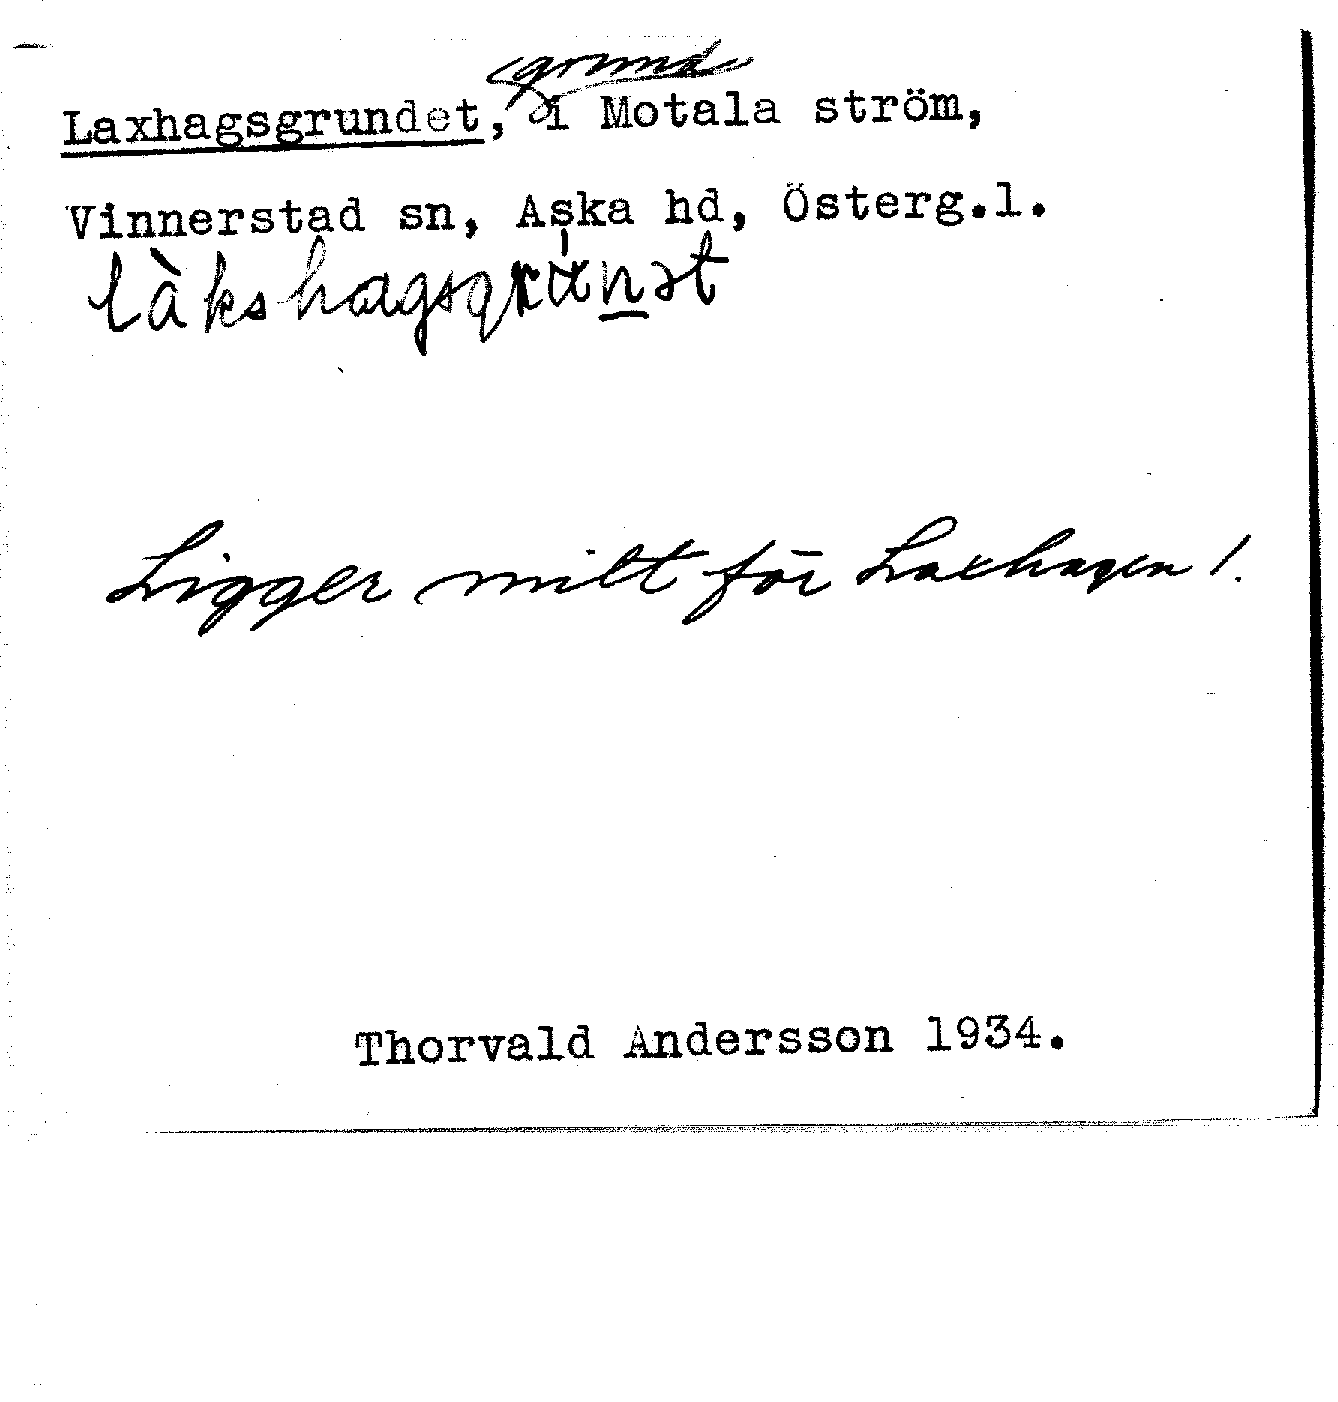 Laxhagsgrundet, grund i Motala ström,
Vinnerstad sn, Aska hd, Österg.l.
làkshagsgrúnət
Ligger mitt för Laxhagen 1.
Thorvald Andersson 1934.